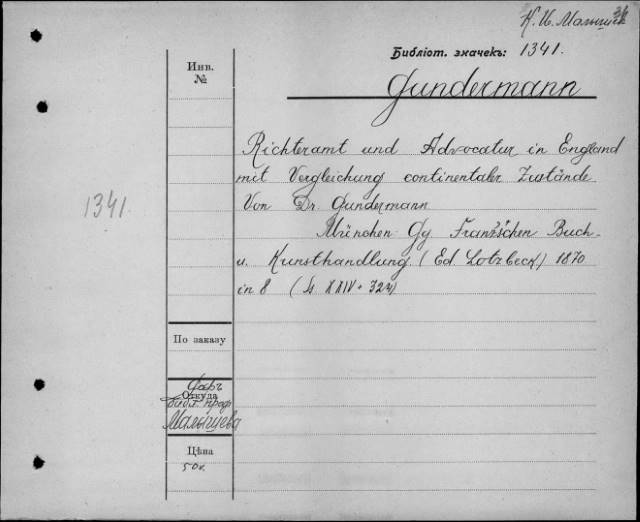 К. И. Малышев
36
Библіот. значекъ: 1341.
Инв.
№
Gundermann
Richteramt und Advocatur in England
mit Vergleichung continentaler Zustände
Von Dr. Gundermann
1341.
München Gg Franz'schen Buch-
u. Kunsthandlung (Ed Lotzbeck) 1870
in 8 (St. XXIV + 324)
По заказу
Даръ
Откуда
библ. проф
Малышева
Цѣна
50к.